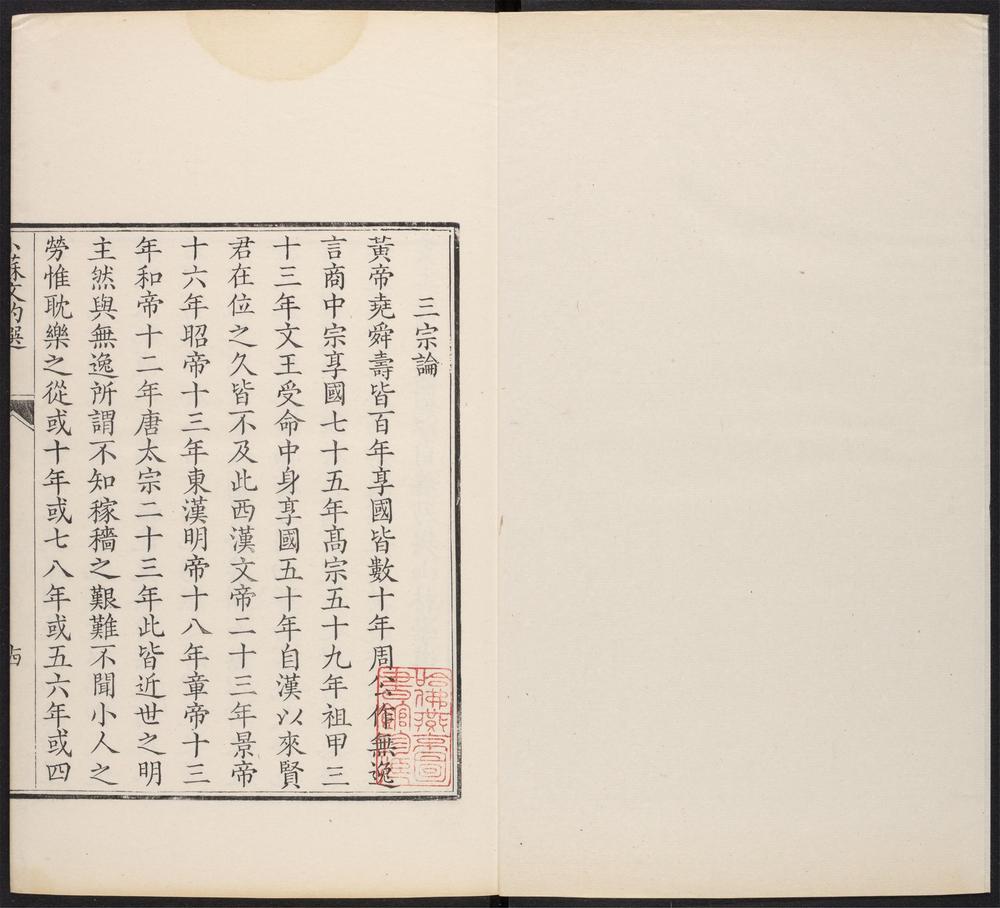 三宗論
黃帝堯舜壽皆百年享國皆數十年周公作無逸
言商中宗享國七十五年髙宗五十九年祖甲三
十三年文王受命中身享國五十年自漢以來賢
君在位之久皆不及此西漢文帝二十三年景帝
十六年昭帝十三年東漢明帝十八年章帝十三
年和帝十二年唐太宗二十三年此皆近世之明
主然與無逸所謂不知稼穡之艱難不聞小人之
勞惟耽樂之從或十年或七八年或五六年或四
小蘇文約選
四
哈佛燕京圖
書館